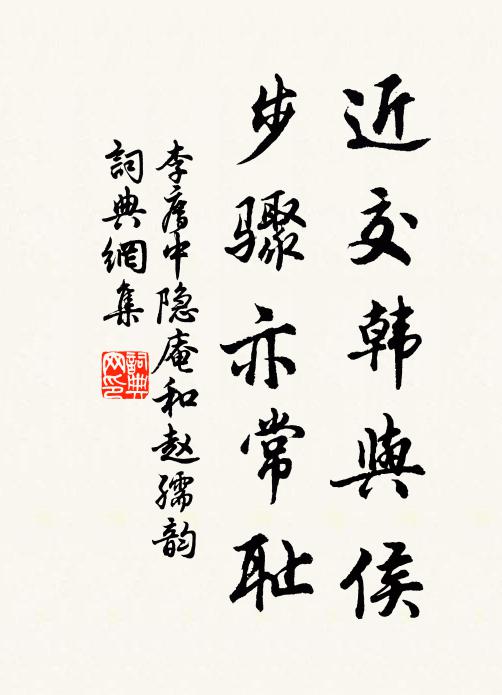 近交韩与侯
步骤亦常耻
李廌中隐庵和赵孺韵
詞典網集
詞典网印